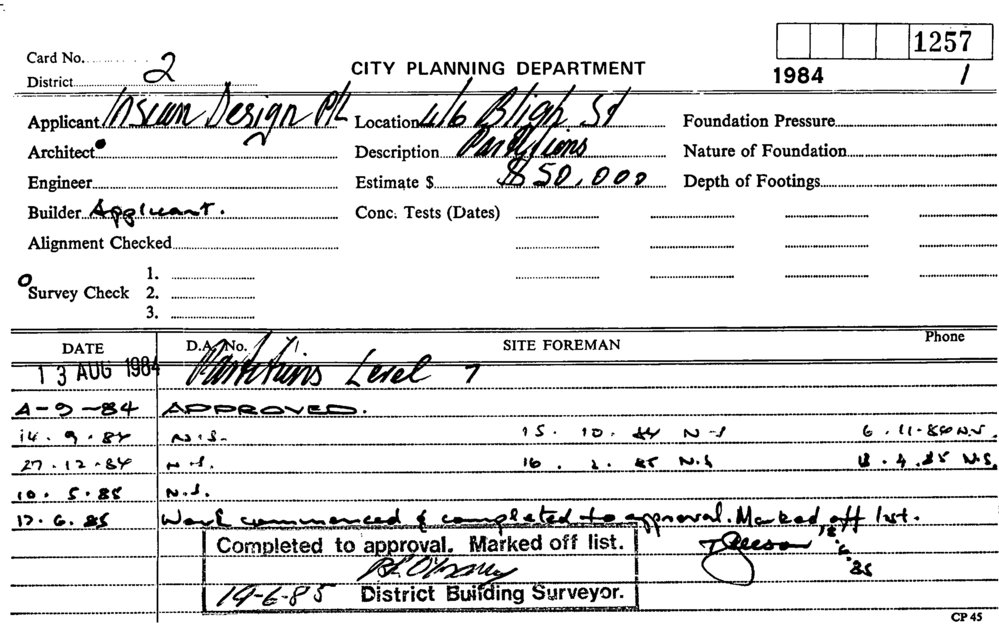 1257
Card No.
CITY PLANNING DEPARTMENT
1984 1
District 2
Applicant Design P/L Location 4/6 Bligh St Foundation Pressure
Architect Description Partitions Nature of Foundation
Engineer Estimate $ $50,000 Depth of Footings
Builder Applicant. Conc. Tests (Dates)
Alignment Checked
1.
Survey Check 2.
3.
DATE D.A. No. SITE FOREMAN Phone
13 AUG 1984 Partitions Level 7
4-9-84 APPROVED.
14.9.84 N.S. 15.10.84 N.S 6.11.84 N.S.
27.12.84 N.S. 16.2.85 N.S 18.4.85 N.S.
10.5.85 N.S.
17.6.85 Work commenced & completed to approval. Marked off list.
Completed to approval. Marked off list. 18.6.85
19-6-85 District Building Surveyor.
CP 45